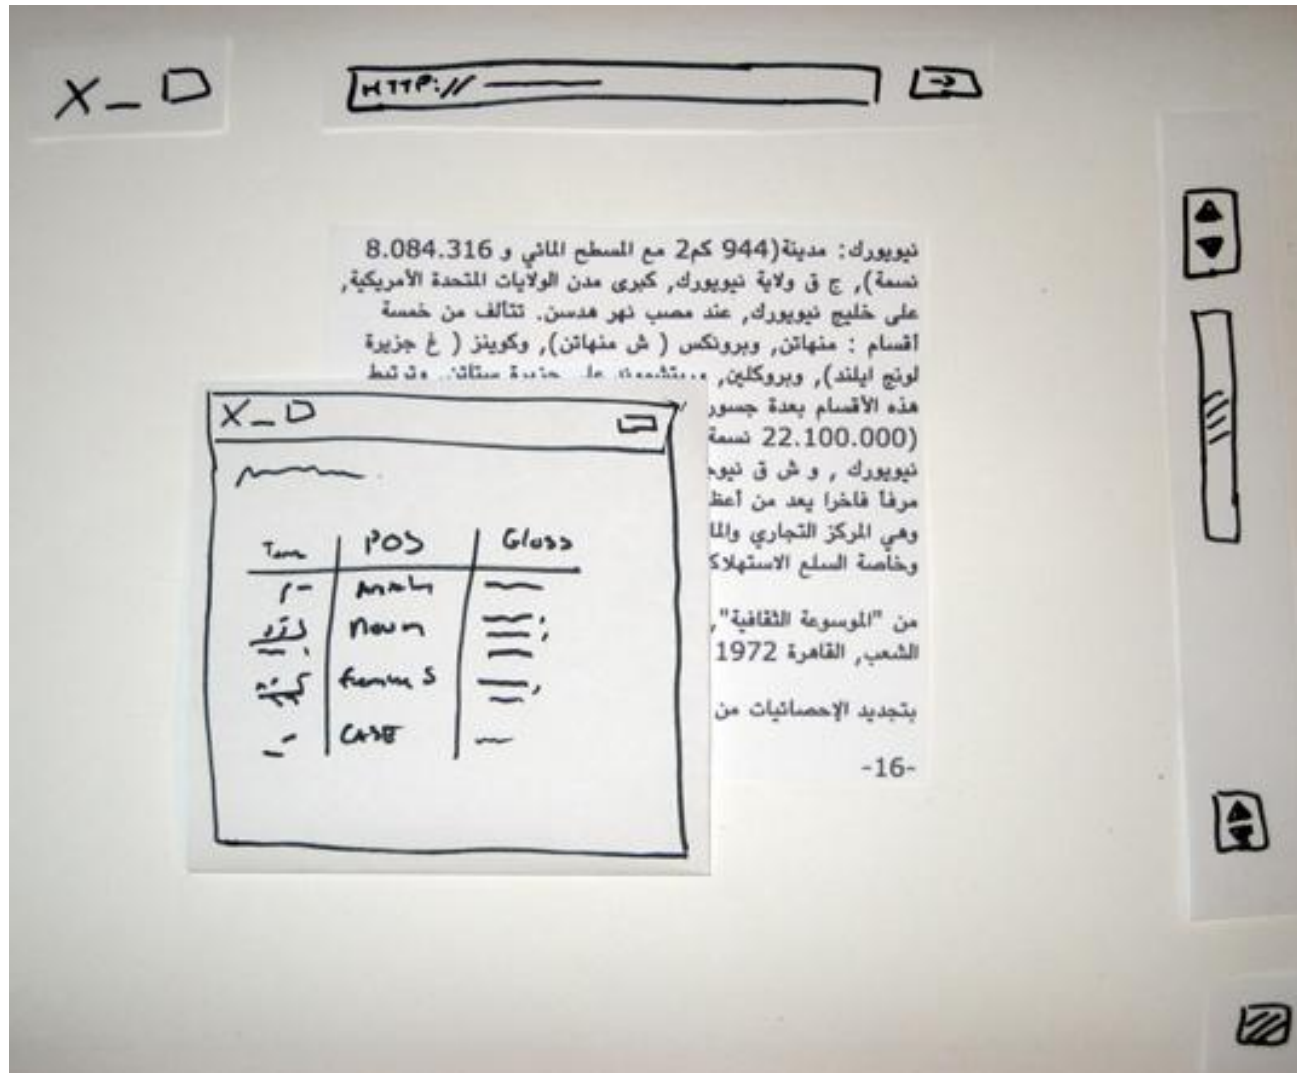 X _ D
HTTP://
نيويورك: مدينة(944 كم2 مع المسطح المائي و 8.084.316
نسمة), ج ق ولاية نيويورك, كبرى مدن الولايات المتحدة الأمريكية,
على خليج نيويورك, عند مصب نهر هدسن. تتألف من خمسة
أقسام : منهاتن, وبرونكس ( ش منهاتن), وكوينز ( غ جزيرة
لونج ايلند), وبروكلين, وريتشموند على جزيرة ستاتن. وترتبط
هذه الأقسام بعدة جسور
(22.100.000 نسمة
نيويورك , و ش ق نيوج
مرفأ فاخرا يعد من أعظ
وهي المركز التجاري والما
وخاصة السلع الاستهلاك
من "الموسوعة الثقافية",
الشعب, القاهرة 1972
بتجديد الإحصائيات من
-16-
X _ D
POS Gloss
noun
CASE